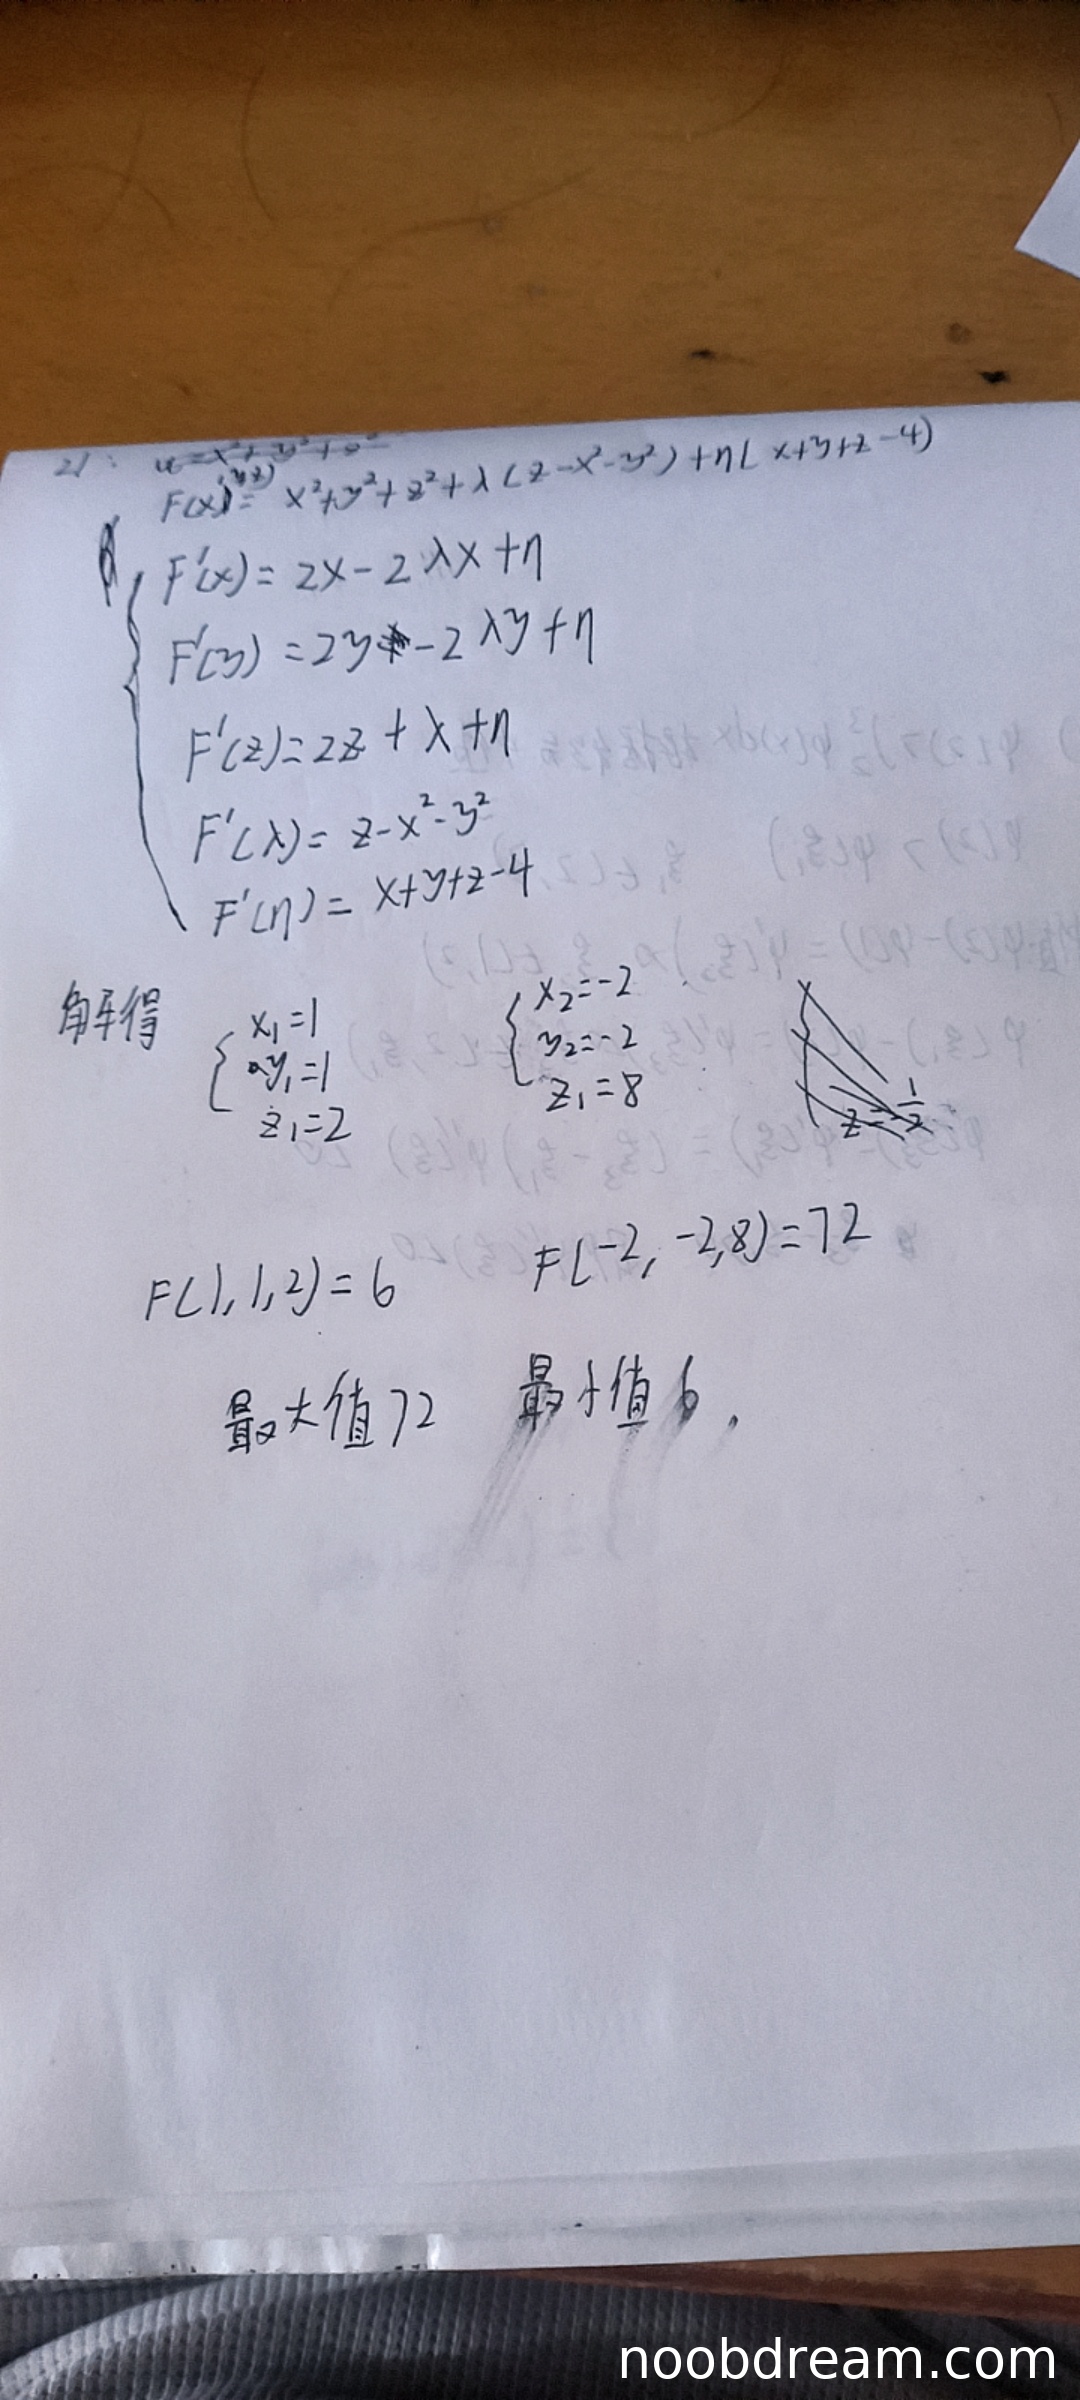 21: u=x²+y²+z²
F(x,y,z)= x²+y²+z²+λ(z-x²-y²)+η(x+y+z-4)
F'(x)=2x-2λx+η
F'(y)=2y-2λy+η
F'(z)=2z+λ+η
F'(λ)=z-x²-y²
F'(η)=x+y+z-4
解得 { x₁=1 y₁=1 z₁=2 { x₂=-2 y₂=-2 z₁=8
z=-1/2
F(1,1,2)=6 F(-2,-2,8)=72
最大值72 最小值6.
noobdream.com